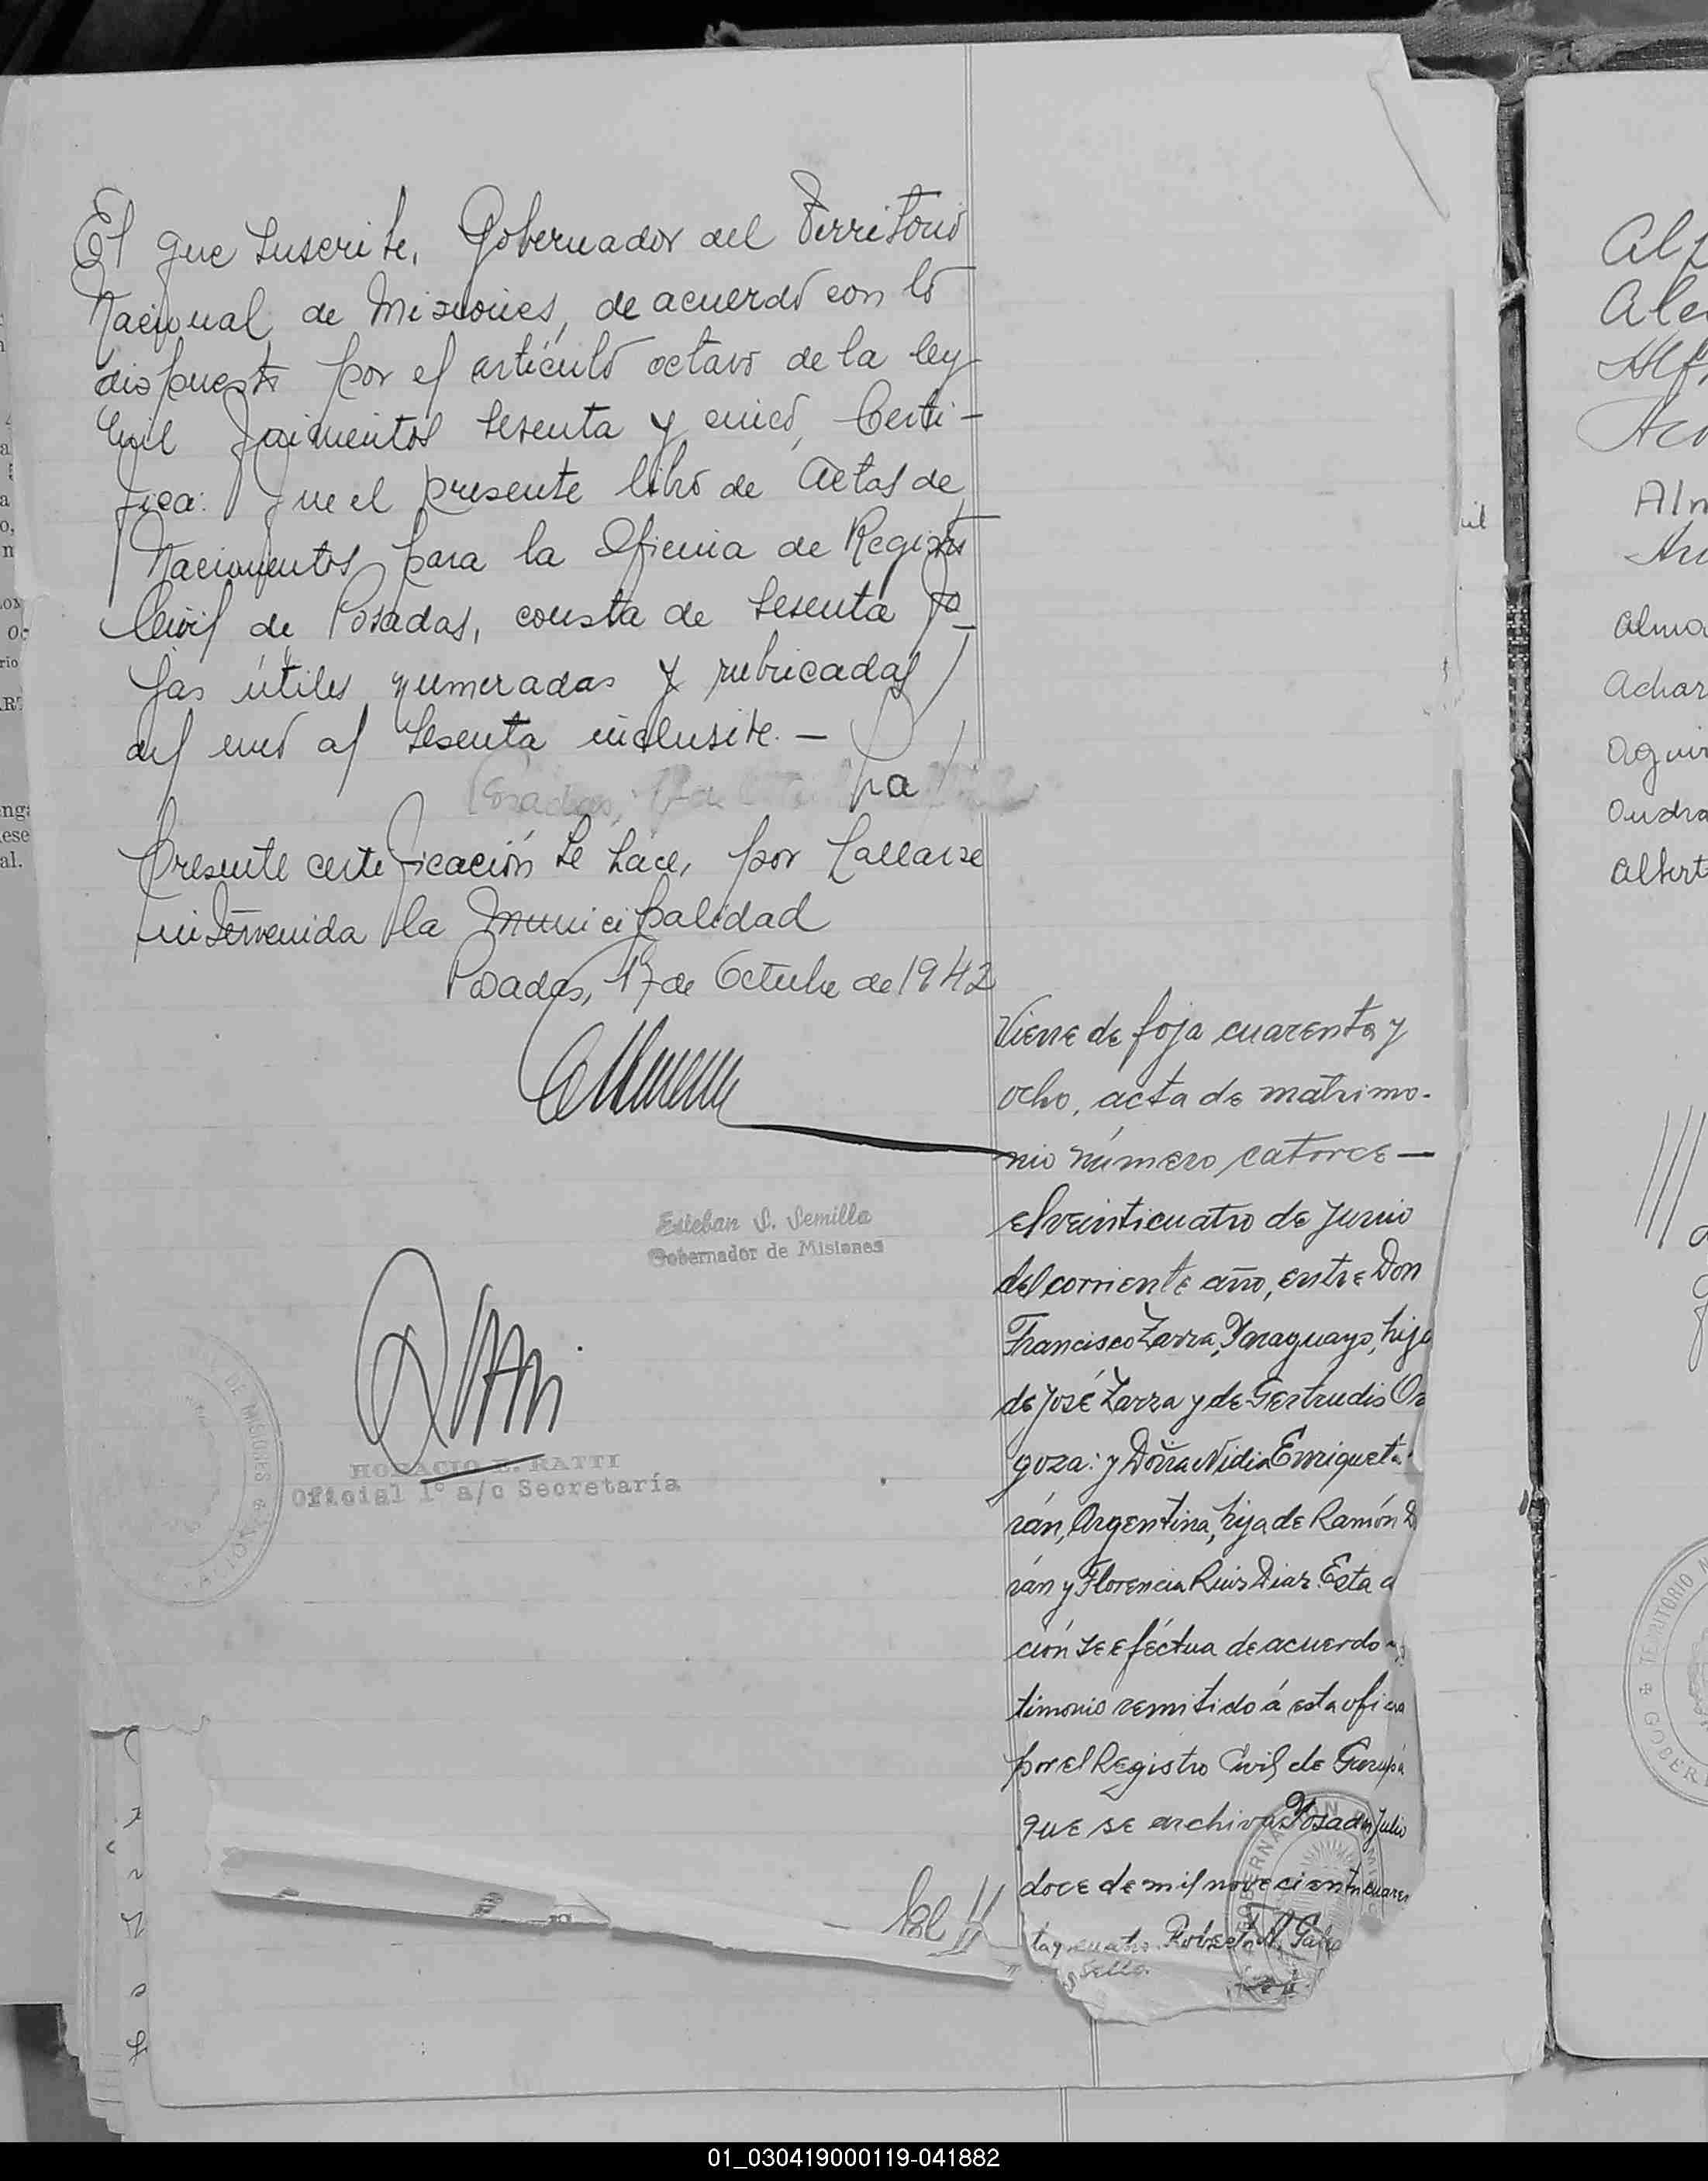 El que suscribe, Gobernador del Territorio
Nacional de Misiones, de acuerdo con lo
dispuesto por el artículo octavo de la ley
mil quinientos sesenta y cinco, Certi-
fica: Que el presente libro de Actas de
Nacimientos para la Oficina de Registro
Civil de Posadas, consta de sesenta fo-
jas útiles numeradas y rubricadas
del uno al sesenta inclusive. —
Posadas, La
presente certificación se hace, por hallarse
intervenida la Municipalidad
Posadas, 17 de Octubre de 1942
Esteban S. Semilla
Gobernador de Misiones
HORACIO E. RATTI
Oficial 1º a/c Secretaría
DE MISIONES
Viene de foja cuarenta y
ocho, acta de matrimo-
nio número catorce —
el veinticuatro de Junio
del corriente año, entre Don
Francisco Zarza, Paraguayo, hijo
de José Zarza y de Gertrudis
goza: y Doña Nidia Enriqueta
rán, Argentina, hija de Ramón D
rán y Florencia Ruiz Diaz. Esta a
ción se eféctua de acuerdo
timonio remitido á esta oficina
por el Registro Civil de Garupá
que se archiva Posadas Julio
doce de mil novecientos cuaren
ta y cuatro. Roberto
sello.
Al
Ale
Alf
Alm
Alma
Achar
Aguir
Albert
TERRITORIO
GOBER
01_030419000119-041882